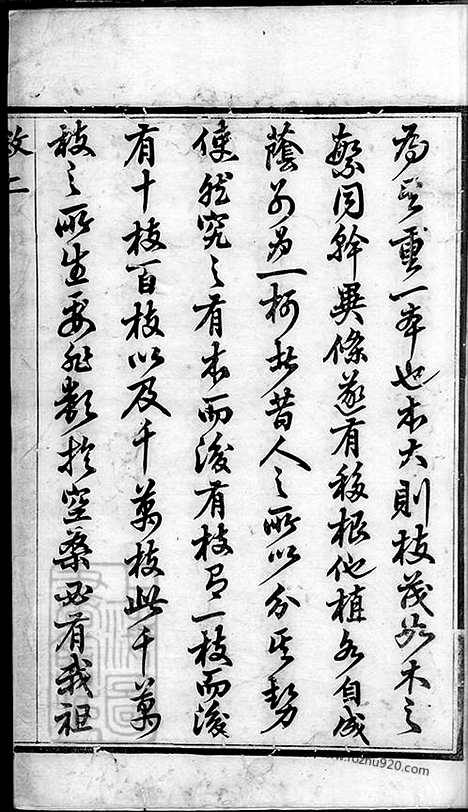 為重一本也本大則枝茂如木之
繁同幹異條遂有移根他植各自成
蔭別為一柯者昔人之所以分其勢
使然究之有本而後有枝有一枝而後
有十枝百枝以及千萬枝此千萬
枝之所生要非類於空桑必有我祖
敘二
www.fozhu920.com